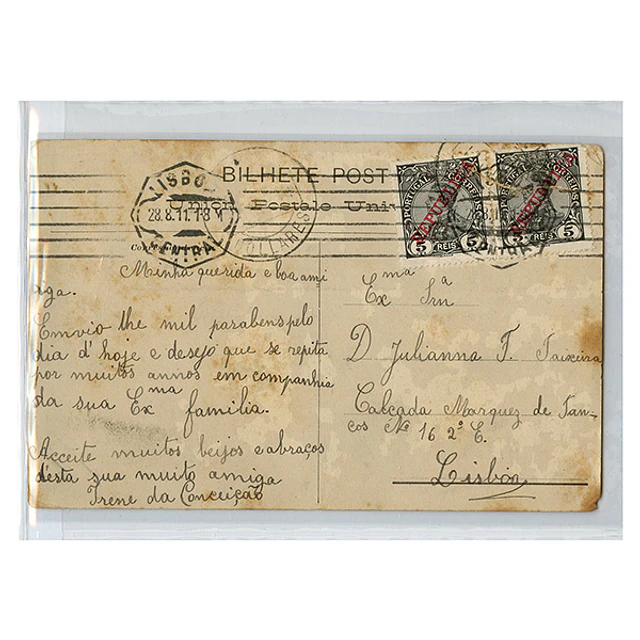 BILHETE POST
União Postale Univ
LISBOA
28.8.11.1-8 M
CENTRAL
COLLARES
PORTUGAL CORREIOS
REPUBLICA
5 REIS 5
PORTUGAL CORREIOS
REPUBLICA
5 REIS 5
28.8.
CENTRAL
Minha querida e boa ami
aga.
Emvio lhe mil parabens pelo
dia d'hoje e desejo que se repita
por muitos annos em companhia
da sua Exma familia.
Acceite muitos beijos e abraços
d'esta sua muito amiga
Irene da Conceição
Exma Snra
D Julianna T. Taixeira
Calçada Marquez de Tan-
cos No 16 2º E.
Lisbôa